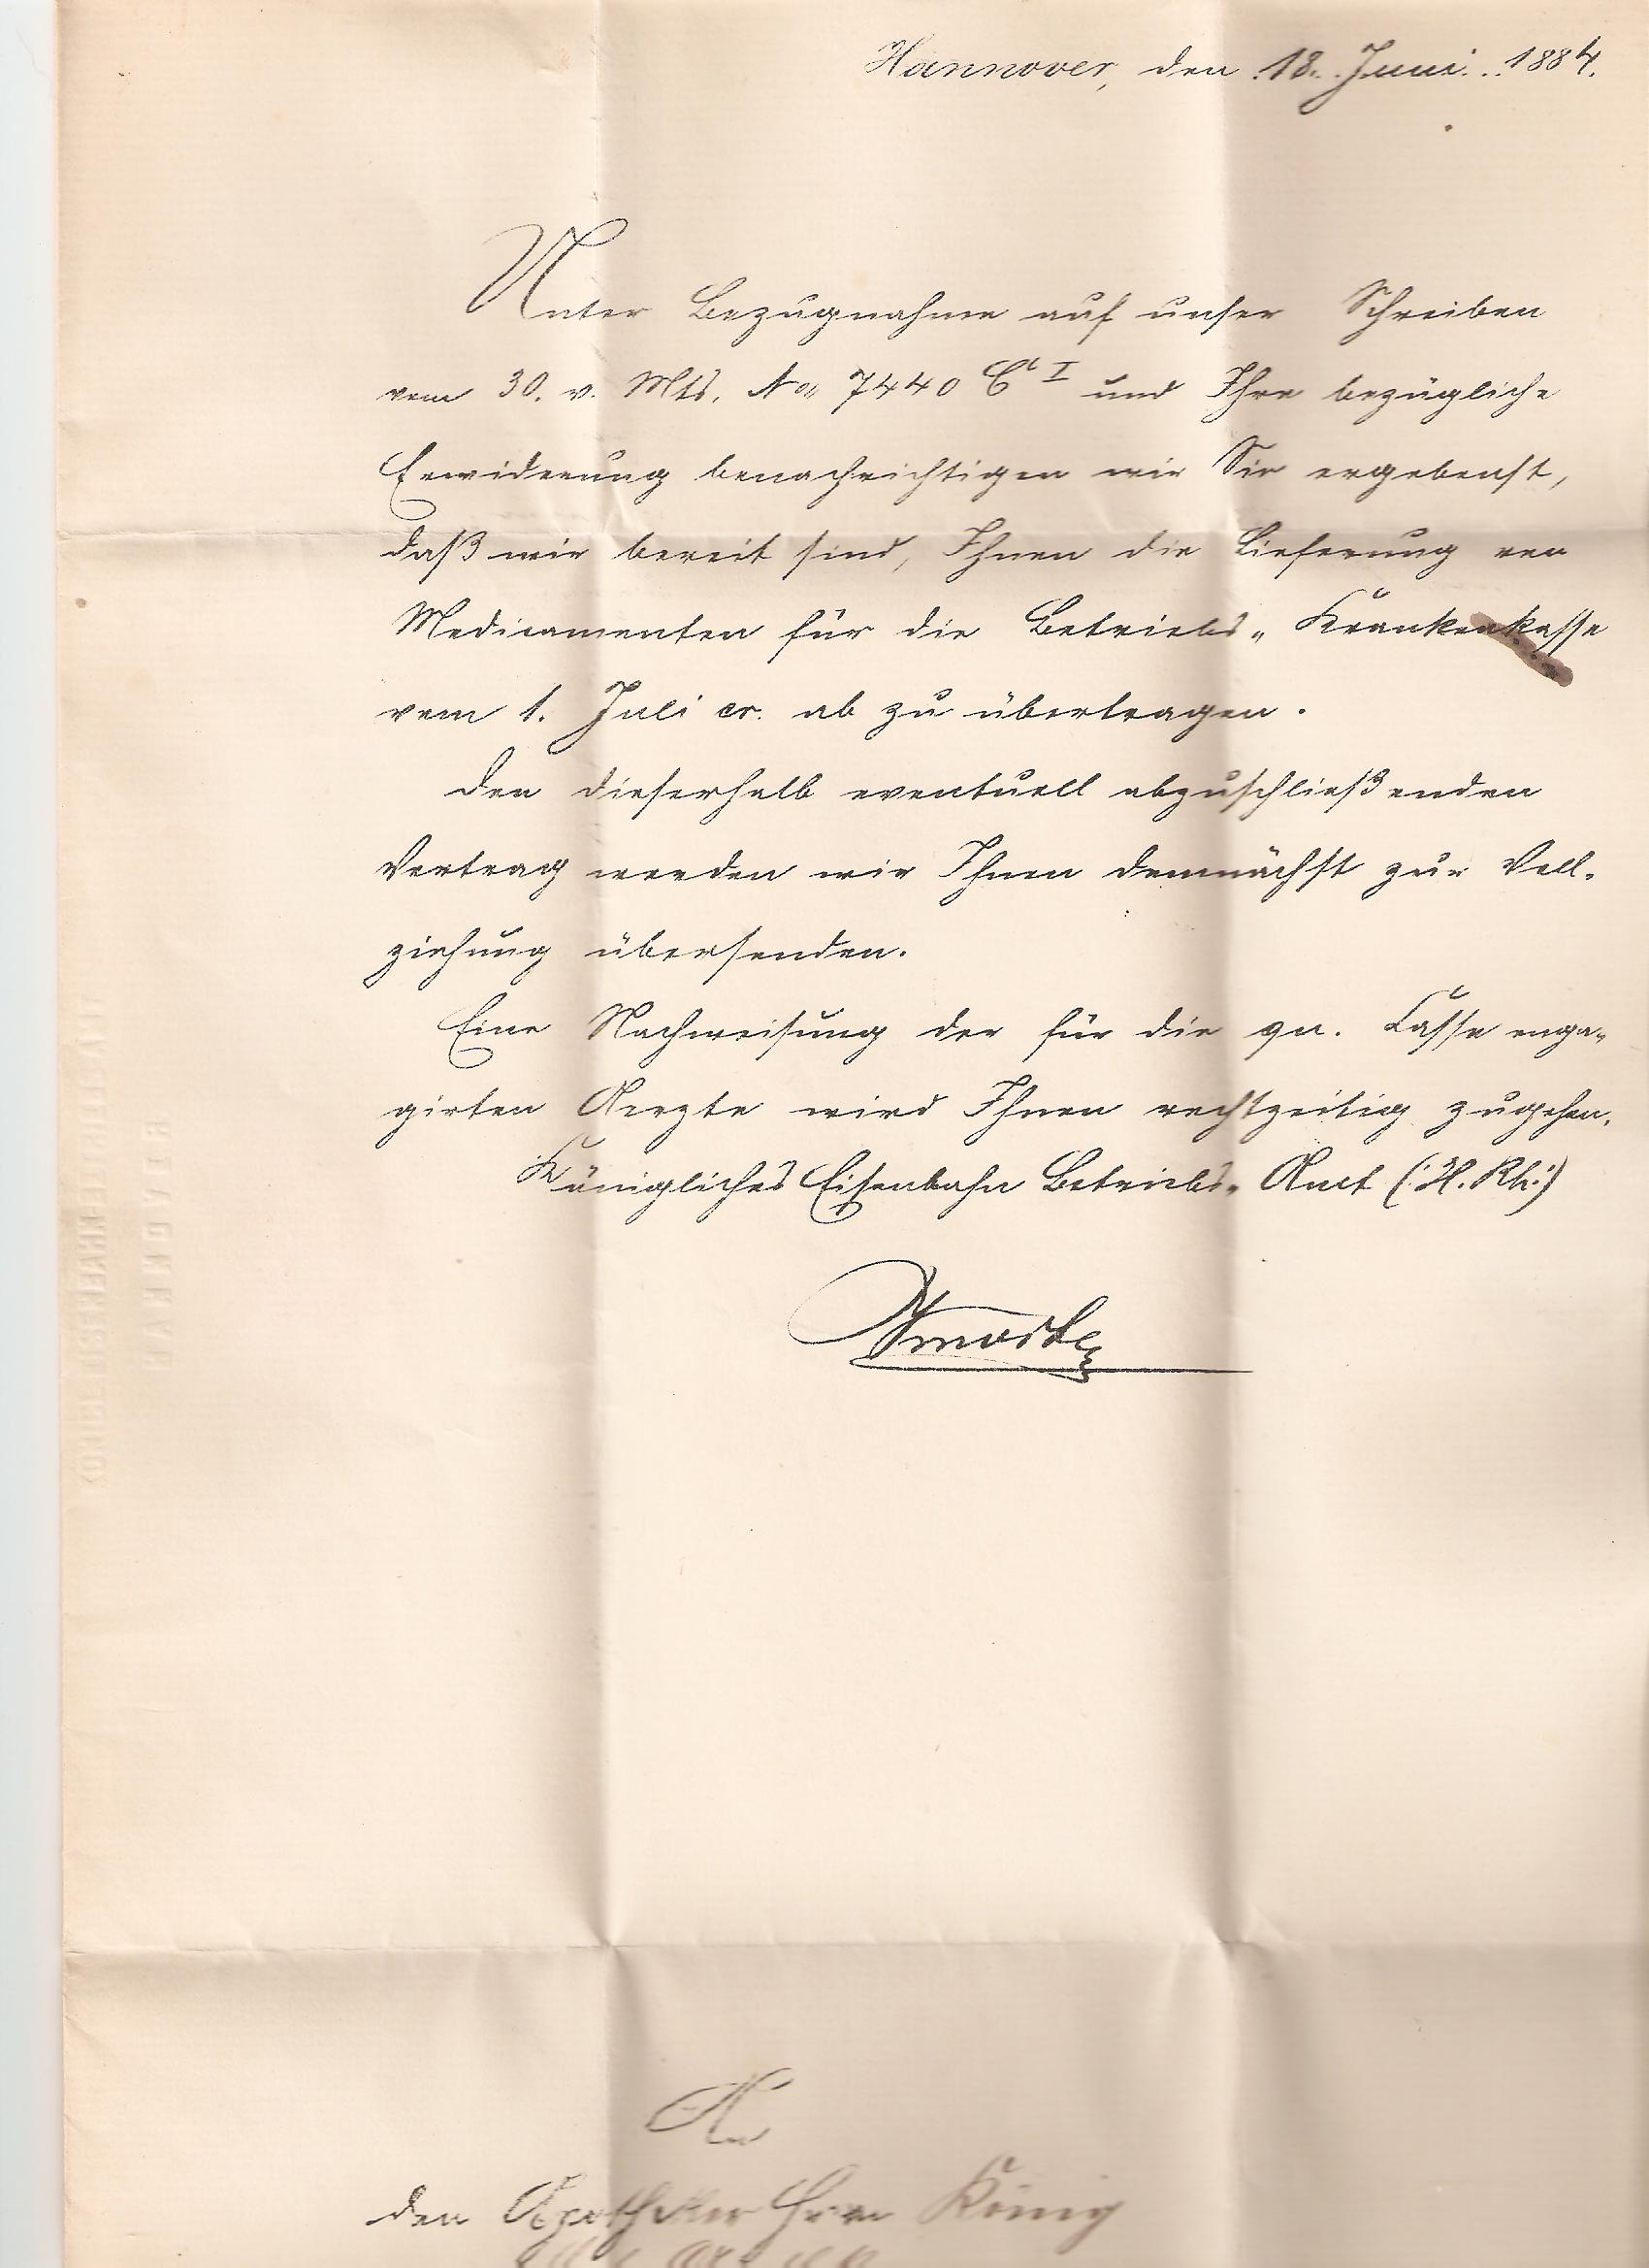 Hannover, den 18. Juni 1884.
Unter Bezugnahme auf unser Schreiben
vom 30. v. Mts. No. 7440 C I und Ihre bezügliche
Erwiderung benachrichtigen wir Sie ergebenst,
daß wir bereit sind, Ihnen die Lieferung von
Medicamenten für die Betriebs- Krankenkasse
vom 1. Juli cr. ab zu übertragen.
Den dieserhalb eventuell abzuschließenden
Vertrag werden wir Ihnen demnächst zur Voll-
ziehung übersenden.
Eine Nachweisung der für die qu. Casse enga-
girten Aerzte wird Ihnen rechtzeitig zugehen.
Königliches Eisenbahn Betriebs- Amt (:H. Rh:)
An
den Apotheker Herrn König